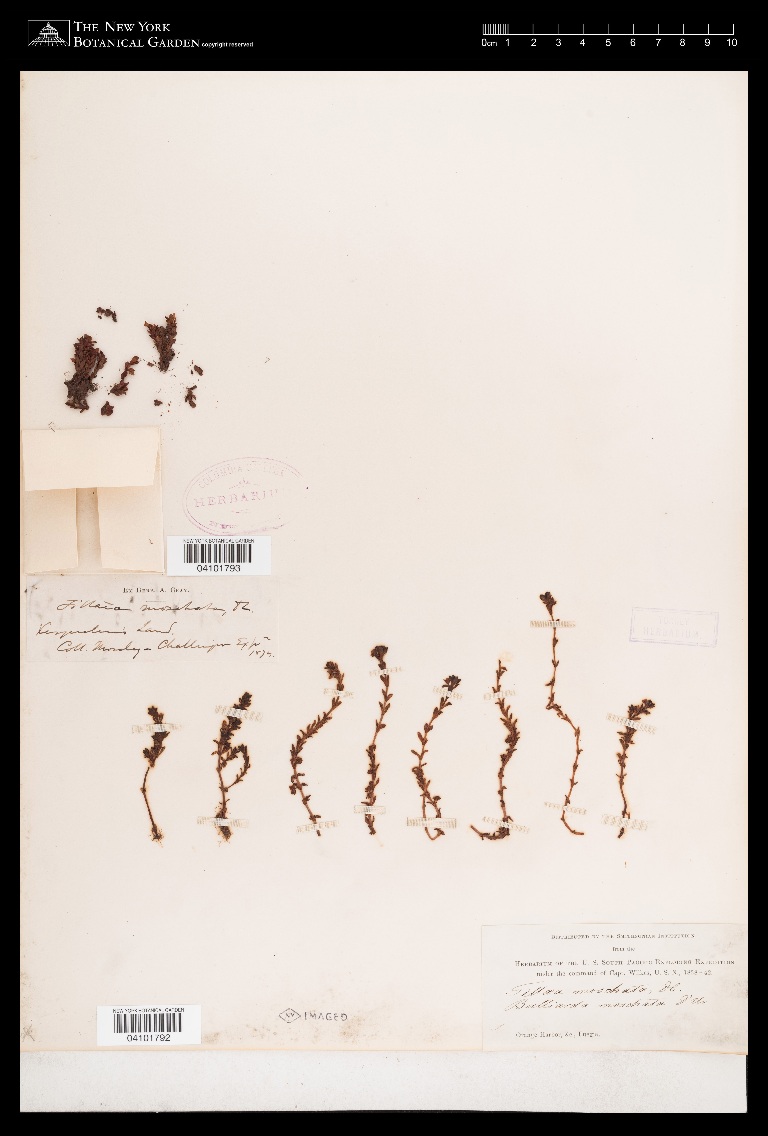 THE NEW YORK
BOTANICAL GARDEN copyright reserved
0cm 1 2 3 4 5 6 7 8 9 10
COLUMBIA COLLEGE
HERBARIUM
NEW YORK BOTANICAL GARDEN
04101793
BY A. GRAY.
Tillaea moschata, DC.
Kerguelens Land.
Coll. Moseley - Challenger Expn
1874.
HERBARIUM
DISTRIBUTED BY THE SMITHSONIAN INSTITUTION
from the
HERBARIUM OF THE U. S. SOUTH PACIFIC EXPLORING EXPEDITION
under the command of Capt. Wilkes, U. S. N., 1838-42.
Tillaea moschata, DC.
Bulliarda moschata D'Ur.
Orange Harbor, Fuegia.
NEW YORK BOTANICAL GARDEN
04101792
NY IMAGED